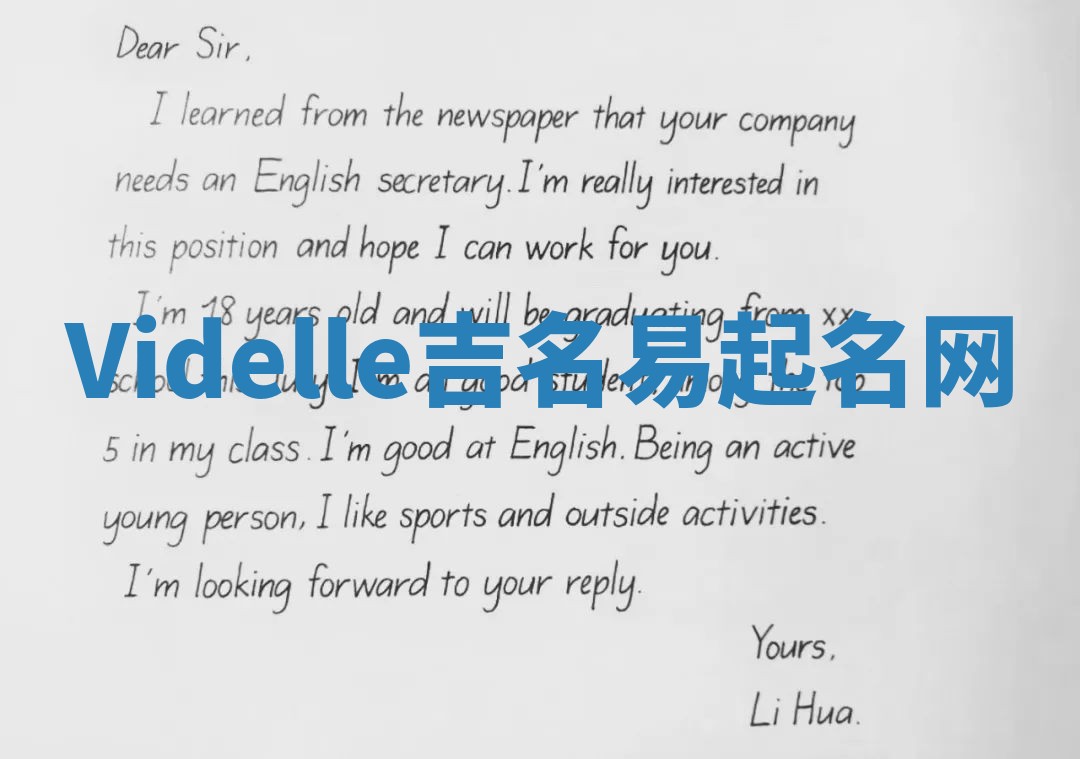 Dear Sir,
I learned from the newspaper that your company
needs an English secretary. I'm really interested in
this position and hope I can work for you.
I'm 18 years old and will be graduating from xx
Videlle吉名易起名网
school this July. I'm a good student, among the top
5 in my class. I'm good at English. Being an active
young person, I like sports and outside activities.
I'm looking forward to your reply.
Yours,
Li Hua.